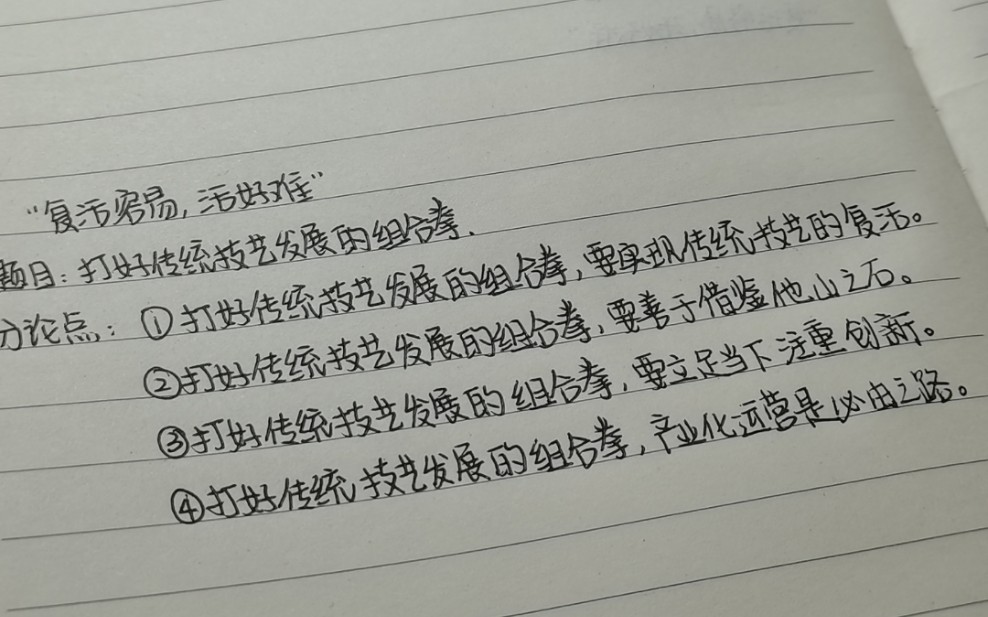 “复活容易,活好难”
题目:打好传统技艺发展的组合拳.
分论点:①打好传统技艺发展的组合拳,要实现传统技艺的复活。
②打好传统技艺发展的组合拳,要善于借鉴他山之石。
③打好传统技艺发展的组合拳,要立足当下注重创新。
④打好传统技艺发展的组合拳,产业化运营是必由之路。